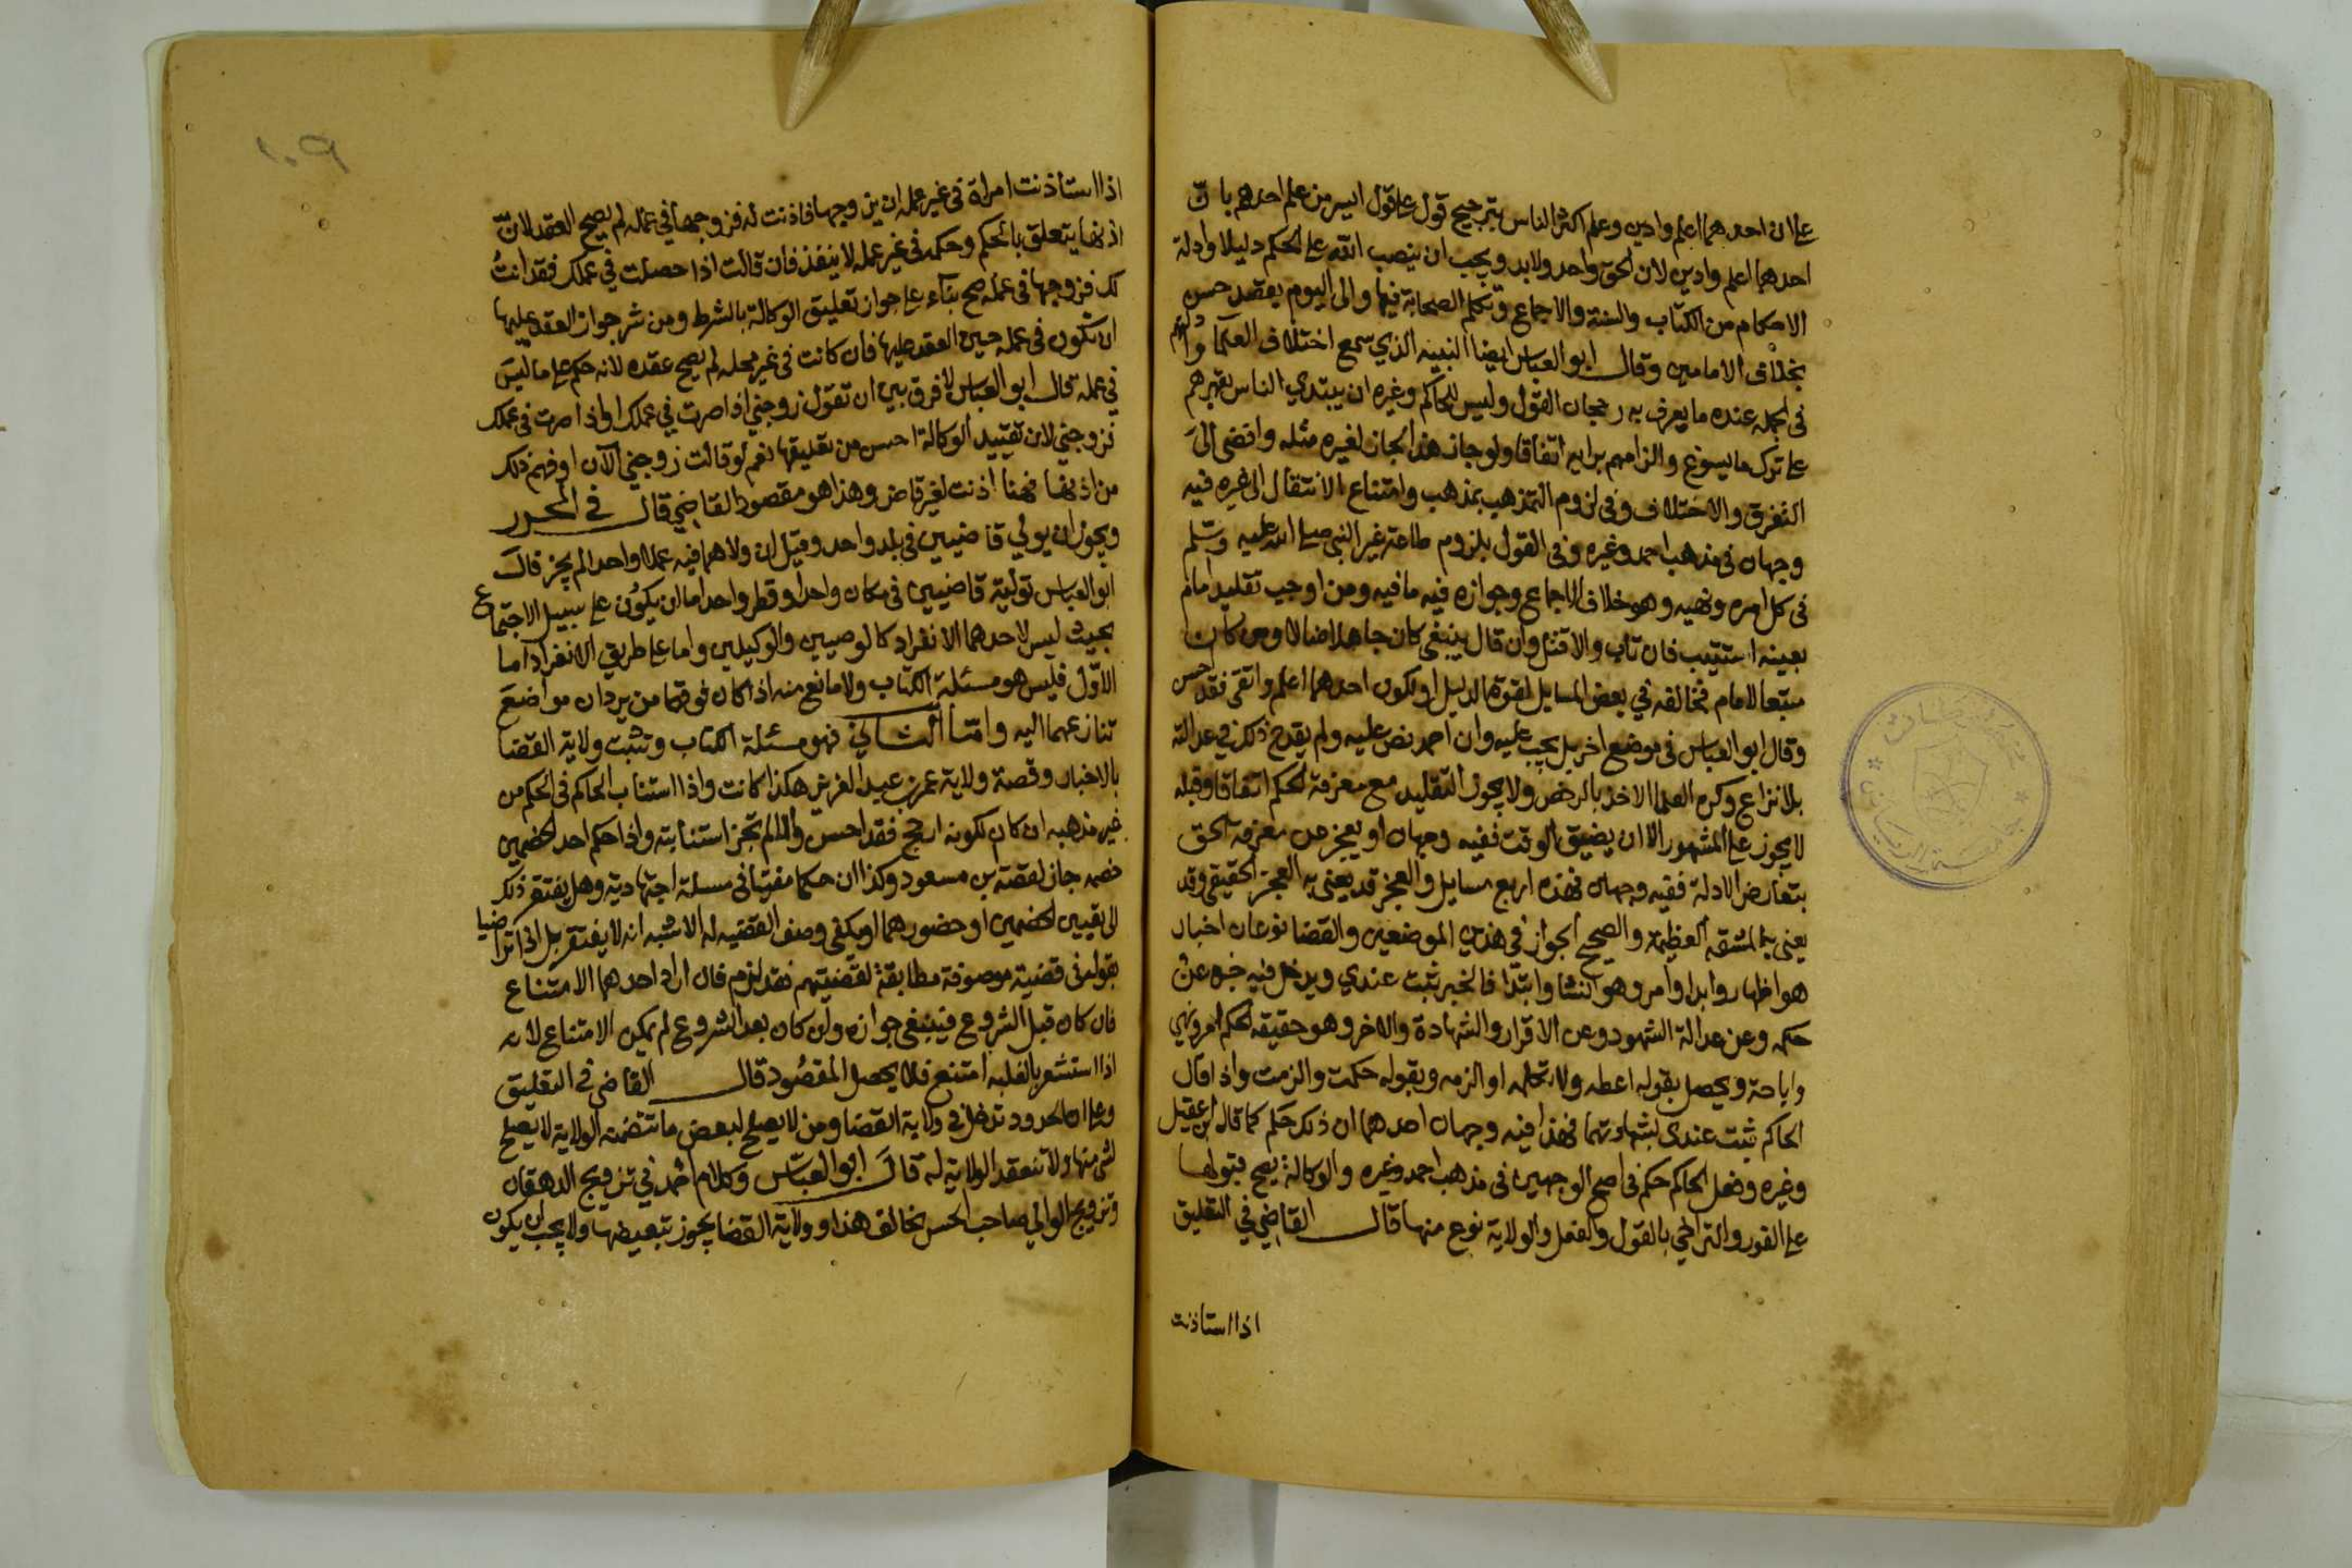 على ان احدهما اعلم وادين وعلم اكثر الناس بترجيح قول على قول ايسر من علم احدهم بان
احدهما اعلم وادين لان الحق واحد ولابد ويجب ان ينصب الله على الحكم دليلا وادلة
الاحكام من الكتاب والسنة والاجماع وتكلم الصحابة فيها والى اليوم بقصد حسن
بخلاف الامامين وقال ابو العباس ايضا النبيه الذي سمع اختلاف العلما وادلتهم
في الجمله عنده ما يعرف به رجحان القول وليس للحاكم وغيره ان يبتدي الناس بقهرهم
على ترك ما يسوغ والزامهم برايه اتفاقا ولو جاز هذا لجاز لغيره مثله وافضى الى
التفرق والاختلاف وفي لزوم التمذهب بمذهب وامتناع الانتقال الى غيره فيه
وجهان في مذهب احمد وغيره وفي القول بلزوم طاعة غير النبي صلى الله عليه وسلم
في كل امره ونهيه وهو خلاف الاجماع وجوازه فيه ما فيه ومن اوجب تقليد امام
بعينه استتيب فان تاب والا قتل وان قال ينبغي كان جاهلا ضالا ومن كان
متبعا لامام فخالفه في بعض المسايل لقوة الدليل او لكون احدهما اعلم واتقى فقد احسن
وقال ابو العباس في موضع اخر بل يجب عليه وان احمد نص عليه ولم يقدح ذلك في عدالته
بلا نزاع وكره العلما الاخذ بالرخص ولا يجوز التقليد مع معرفة الحكم اتفاقا وقبله
لا يجوز على المشهور الا ان يضيق الوقت ففيه وجهان او يعجز عن معرفة الحق
بتعارض الادلة ففيه وجهان فهذه اربع مسايل والعجز قد يعنى به العجز الحقيقي وقد
يعنى به المشقه العظيمة والصحيح الجواز في هذين الموضعين والقضا نوعان اخبار
هو اظهار وابدا وامر وهو انشا وابتدا فالخبر ثبت عندي ويدخل فيه خبره عن
حكمه وعن عدالة الشهود وعن الاقرار والشهادة والاخر وهو حقيقه الحكم امر ونهي
واباحة ويحصل بقوله اعطه ولا تكلمه او الزمه وبقوله حكمت والزمت واذا قال
الحاكم ثبت عندي بشهادتهما فهذا فيه وجهان احدهما ان ذلك حكم كما قال ابن عقيل
وغيره وفعل الحاكم حكم في اصح الوجهين في مذهب احمد وغيره والوكالة يصح قبولها
على الفور والتراخي بالقول والفعل والولاية نوع منها قال القاضي في التعليق
اذا استاذنت
١٠٩
اذا استاذنت امراة في غير عمله ان يزوجها فاذنت له فزوجها في عمله لم يصح العقد لان
اذنها يتعلق بالحكم وحكمه في غير عمله لا ينفذ فان قالت اذا حصلت في عملك فقد اذنت
لك فزوجها في عمله صح بناء على جواز تعليق الوكالة بالشرط ومن شرط جواز العقد عليها
ان تكون في عمله حين العقد عليها فان كانت في غير محله لم يصح عقده لانه حكم على ما ليس
في عمله قال ابو العباس لا فرق بين ان تقول زوجني اذا صرت في عملك او اذا صرت في عملك
فزوجني لان تقييد الوكالة احسن من تعليقها نعم لو قالت زوجني الآن او فهم ذلك
من اذنها فهنا اذنت لغير قاض وهذا هو مقصود القاضي قال في المحرر
ويجوز ان يولي قاضيين في بلد واحد وقيل ان ولاهما فيه عملا واحدا لم يجز قال
ابو العباس تولية قاضيين في مكان واحد او قطر واحد اما ان يكون على سبيل الاجتماع
بحيث ليس لاحدهما الانفراد كالوصيين والوكيلين واما على طريق الانفراد اما
الاول فليس هو مسئلة الكتاب ولا مانع منه اذا كان فوقهما من يردان مواضع
تنازعهما اليه واما الثاني فهو مسئلة الكتاب وتثبت ولاية القضا
بالاخبار وقصة ولاية عمر بن عبد العزيز هكذا كانت واذا استناب الحاكم في الحكم من
غير مذهبه ان كان لكونه ارجح فقد احسن والا لم تجز استنابته واذا حكم احد الخصمين
خصمه جاز لقصة بن مسعود وكذا ان حكما مفتيا في مسئلة اجتهادية وهل يفتقر ذلك
الى تعيين الخصمين او حضورهما او يكفي وصف القضيه له الاشبه انه لا يفتقر بل اذا تراضيا
بقوله في قضية موصوفة مطابقة لقضيتهم فقد لزم فان اراد احدهما الامتناع
فان كان قبل الشروع فينبغي جوازه وان كان بعد الشروع لم يمكن الامتناع لانه
اذا استشعر بالغلبه امتنع فلا يحصل المقصود قال القاضي في التعليق
وعلى ان الحدود تدخل في ولاية القضا ومن لا يصلح لبعض ما تتضمنه الولاية لا يصلح
لشي منها ولا تنعقد الولاية له قال ابو العباس وكلام احمد في تزويج الدهقان
وتزويج الوالي صاحب الحسن يخالف هذا وولاية القضا يجوز تبعيضها ولا يجب ان يكون